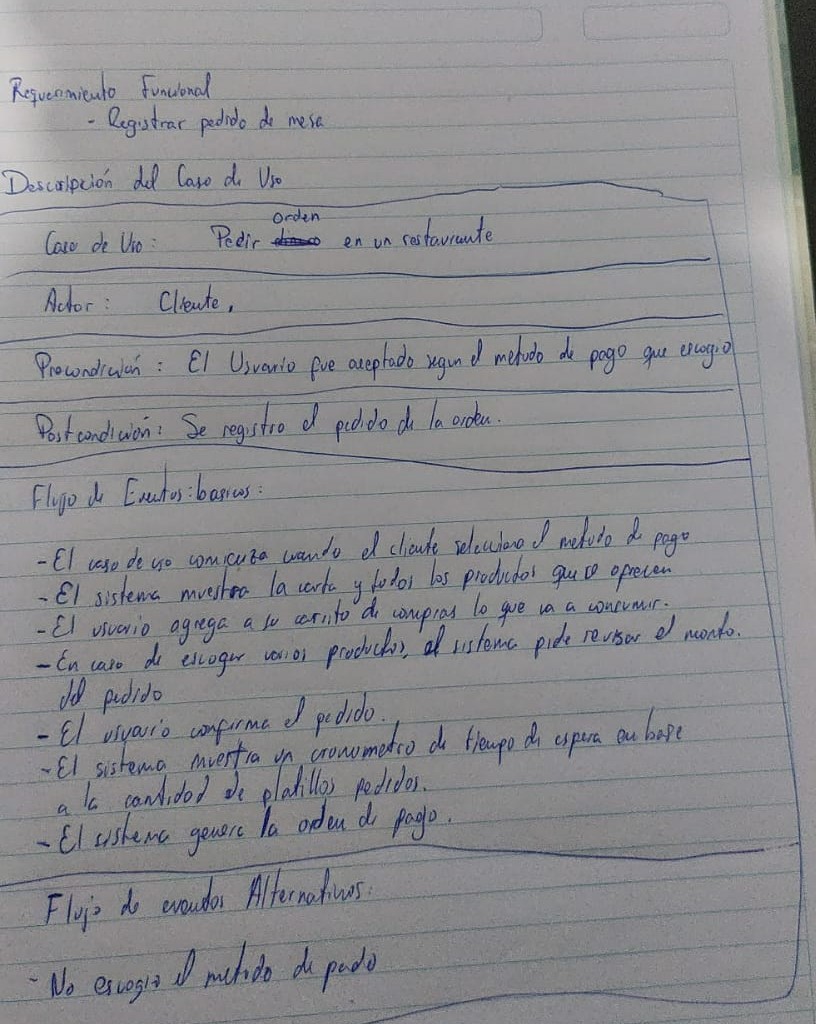 Requerimiento Funcional
- Registrar pedido de mesa
Descripción del Caso de Uso
orden
Caso de Uso: Pedir en un restaurante
Actor: Cliente.
Precondición: El Usuario fue aceptado segun el metodo de pago que escogio
Postcondición: Se registro el pedido de la orden.
Flujo de Eventos: basicos:
- El caso de uso comienza cuando el cliente selecciona el metodo de pago
- El sistema muestra la carta y todos los productos que se ofrecen
- El usuario agrega a su carrito de compras lo que va a consumir.
- En caso de escoger varios productos, el sistema pide revisar el monto.
del pedido
- El usuario confirma el pedido.
- El sistema muestra un cronometro de tiempo de espera en base
a la cantidad de platillos pedidos.
- El sistema genera la orden de pago.
Flujo de eventos Alternativos:
- No escogio el metodo de pado